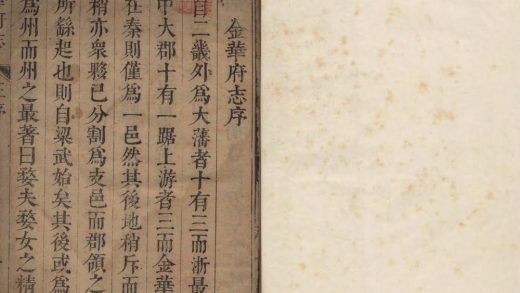 金華府志序
自二畿外爲大藩者十有三而浙最
中大郡十有一踞上游者三而金華
在秦則僅爲一邑然其後地稍斥而
稍亦衆夥已分割爲支邑而郡領之
所繇起也則自梁武始矣其後或爲
爲州而州之最著曰婺夫婺女之精
府志 序